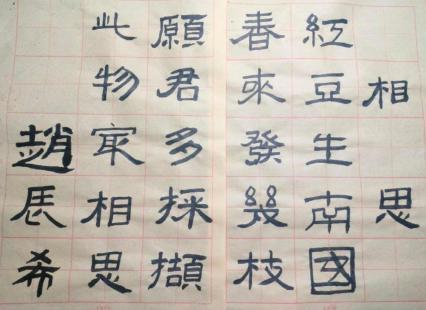 相思
紅豆生南國
春來發幾枝
願君多採擷
此物冣相思
趙辰希